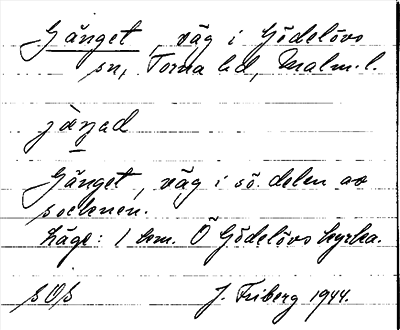 Gånget, väg i Gödelövs
sn, Torna hd, Malm. l.
Gånget, väg i sö. delen av
socknen.
Läge: 1 km. Ö Gödelövs kyrka.
SOS J. Friberg 1944.